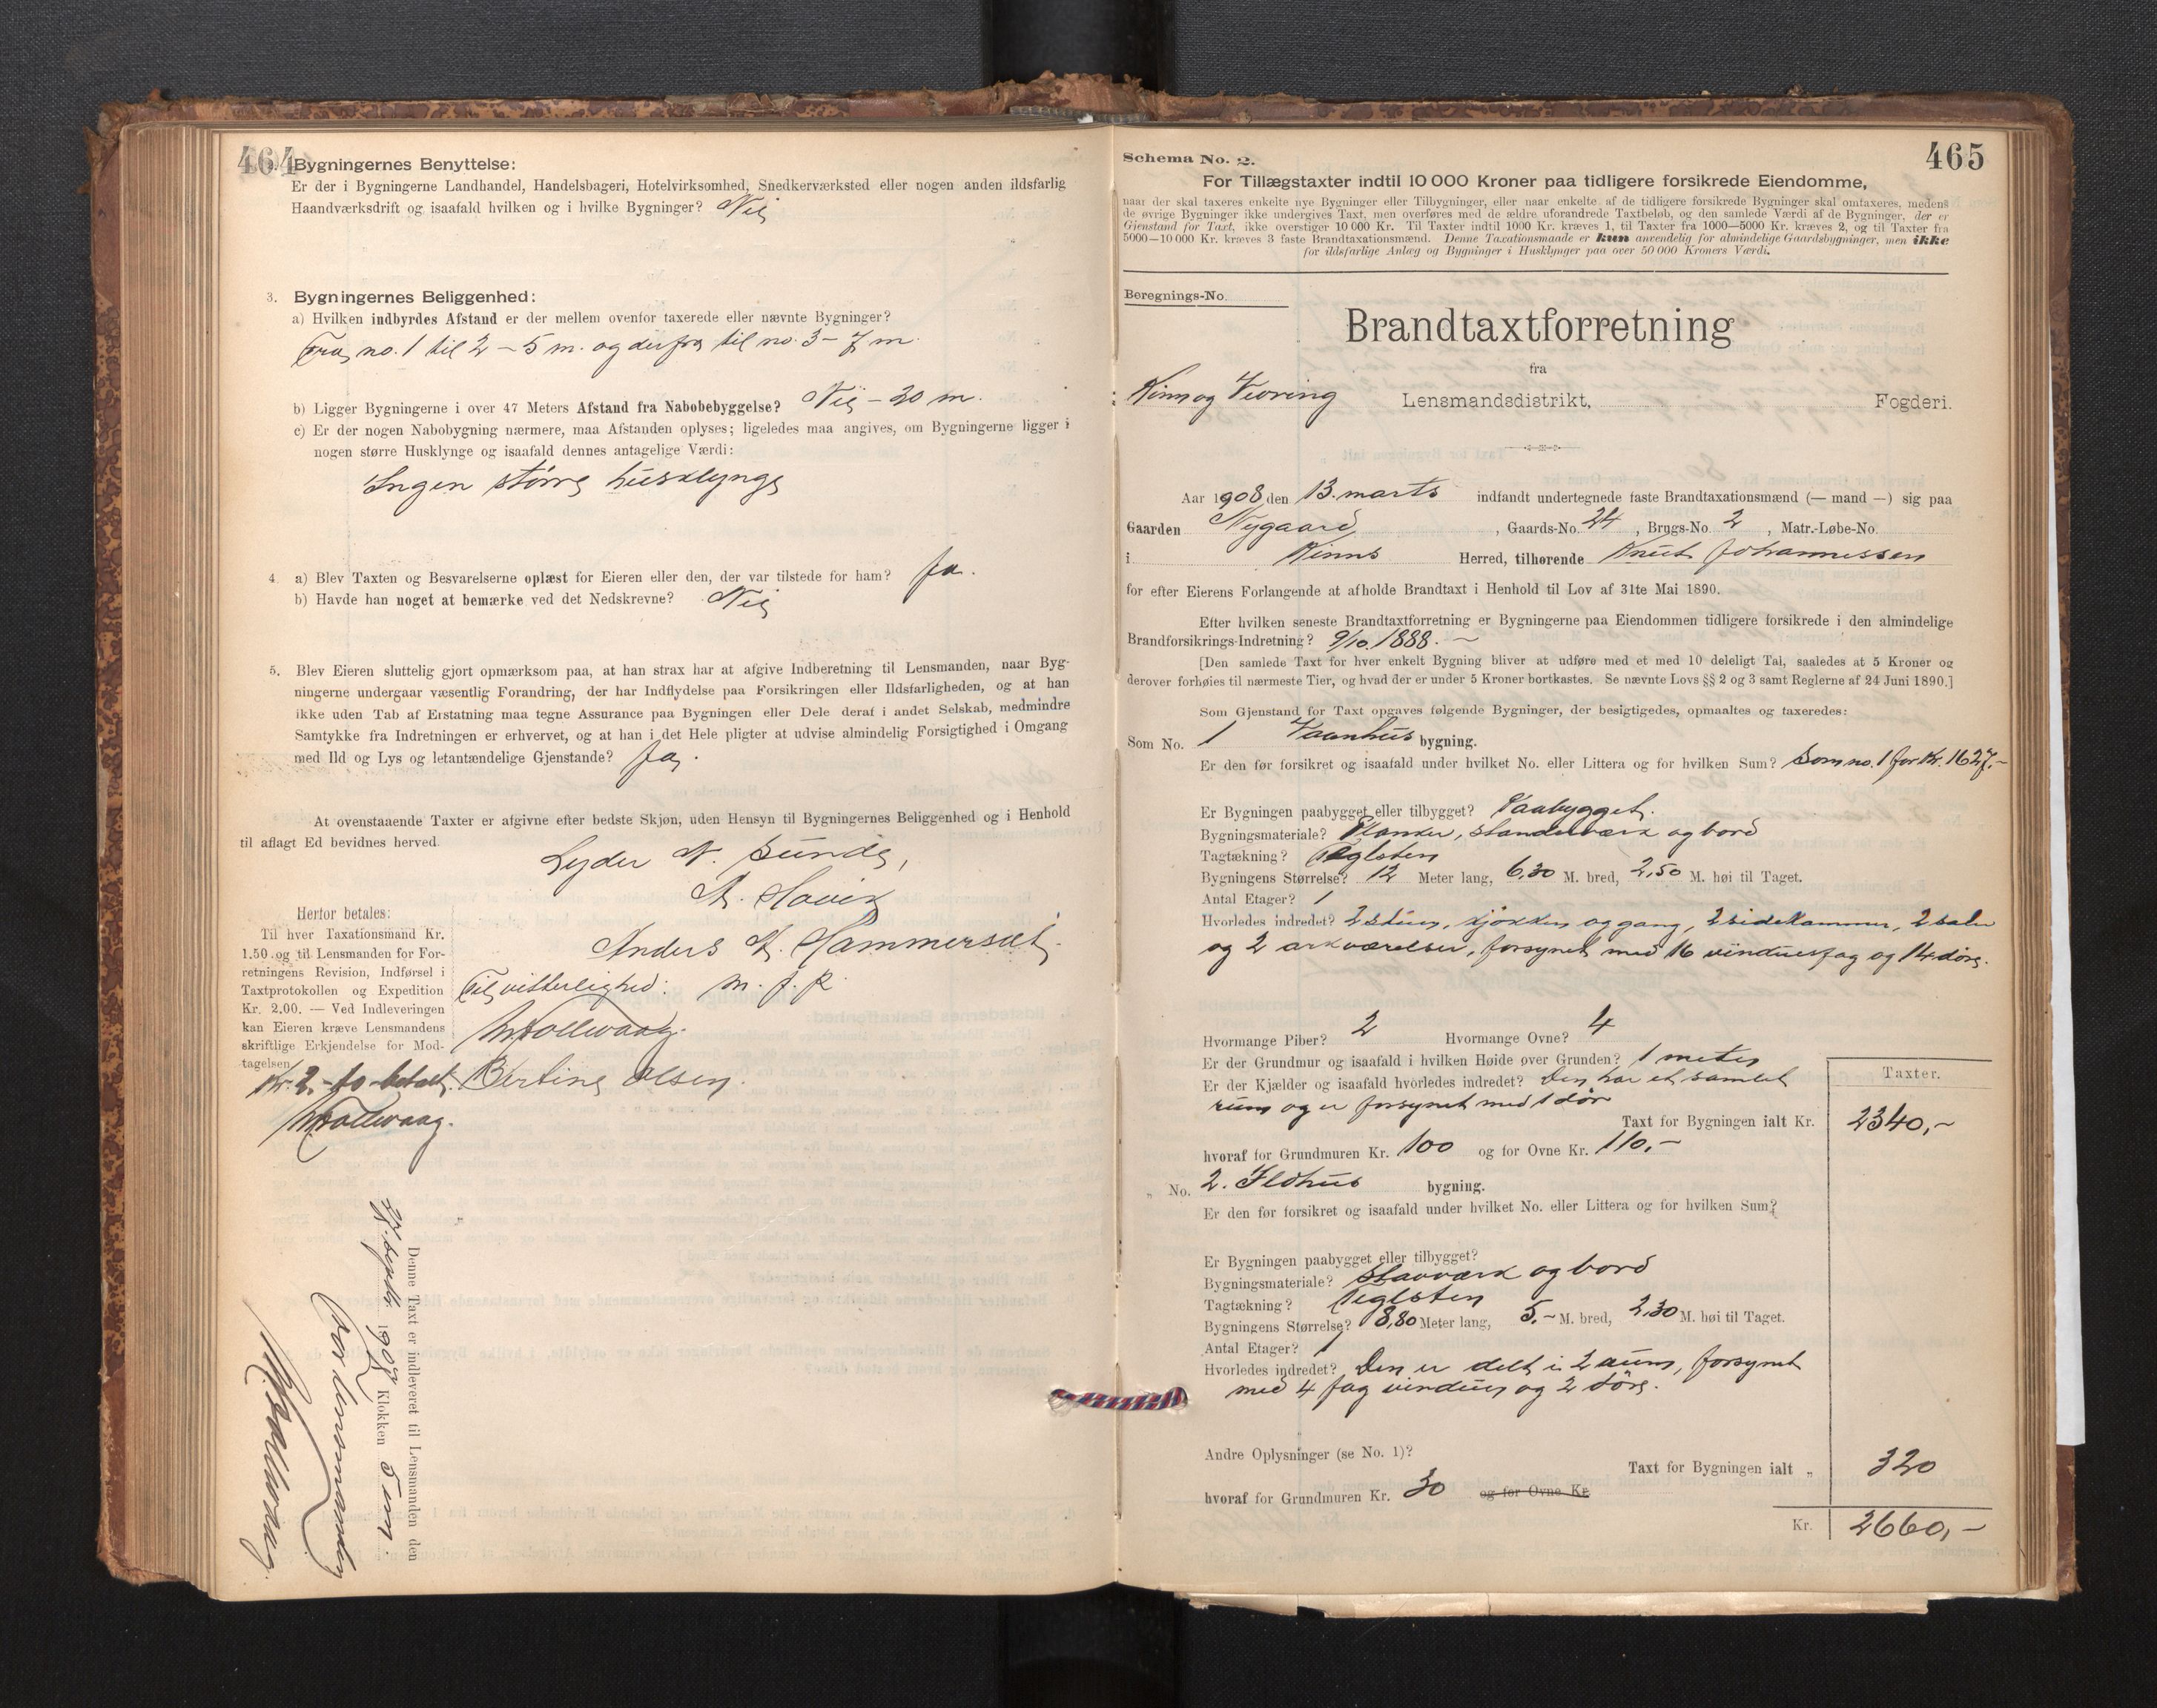 464
2. Bygningernes Benyttelse:
Er der i Bygningerne Landhandel, Handelsbageri, Hotelvirksomhed, Snedkerværksted eller nogen anden ildsfarlig
Haandværksdrift og isaafald hvilken og i hvilke Bygninger? Nei
3. Bygningernes Beliggenhed:
a) Hvilken indbyrdes Afstand er der mellem ovenfor taxerede eller nævnte Bygninger?
Fra no. 1 til 2 - 5 m. og derfra til no. 3 - 7 m.
b) Ligger Bygningerne i over 47 Meters Afstand fra Nabobebyggelse? Nei - 20 m.
c) Er der nogen Nabobygning nærmere, maa Afstanden oplyses; ligeledes maa angives, om Bygningerne ligger i
nogen større Husklynge og isaafald dennes antagelige Værdi:
Ingen større husklynge
4. a) Blev Taxten og Besvarelserne oplæst for Eieren eller den, der var tilstede for ham? Ja.
b) Havde han noget at bemærke ved det Nedskrevne? Nei
5. Blev Eieren sluttelig gjort opmærksom paa, at han strax har at afgive Indberetning til Lensmanden, naar Byg-
ningerne undergaar væsentlig Forandring, der har Indflydelse paa Forsikringen eller Ildsfarligheden, og at han
ikke uden Tab af Erstatning maa tegne Assurance paa Bygningen eller Dele deraf i andet Selskab, medmindre
Samtykke fra Indretningen er erhvervet, og at han i det Hele pligter at udvise almindelig Forsigtighed i Omgang
med Ild og Lys og letantændelige Gjenstande? Ja.
At ovenstaaende Taxter er afgivne efter bedste Skjøn, uden Hensyn til Bygningernes Beliggenhed og i Henhold
til aflagt Ed bevidnes herved.
Lyder N. Sunde,
A. Havik
Anders A. Hammerset.
Til vitterlighed: m. f. P.
MTollevaag.
Bertine Olsen.
Herfor betales:
Til hver Taxationsmand Kr.
1.50 og til Lensmanden for For-
retningens Revision, Indførsel i
Taxtprotokollen og Expedition
Kr. 2.00. — Ved Indleveringen
kan Eieren kræve Lensmandens
skriftlige Erkjendelse for Mod-
tagelsen.
Kr. 2,- betalt.
MTollevaag.
Denne Taxt er indleveret til Lensmanden den
1908 Klokken 5 em.
for lensmanden
MTollevaag
465
Schema No. 2.
For Tillægstaxter indtil 10 000 Kroner paa tidligere forsikrede Eiendomme,
naar der skal taxeres enkelte nye Bygninger eller Tilbygninger, eller naar enkelte af de tidligere forsikrede Bygninger skal omtaxeres, medens
de øvrige Bygninger ikke undergives Taxt, men overføres med de ældre uforandrede Taxtbeløb, og den samlede Værdi af de Bygninger, der er
Gjenstand for Taxt, ikke overstiger 10 000 Kr. Til Taxter indtil 1000 Kr. kræves 1, til Taxter fra 1000—5000 Kr. kræves 2, og til Taxter fra
5000—10 000 Kr. kræves 3 faste Brandtaxationsmænd. Denne Taxationsmaade er kun anvendelig for almindelige Gaardsbygninger, men ikke
for ildsfarlige Anlæg og Bygninger i Husklynger paa over 50 000 Kroners Værdi.
Beregnings-No.
Brandtaxtforretning
fra
Kinn og Vevring Lensmandsdistrikt, Fogderi.
Aar 1908 den 13. marts indfandt undertegnede faste Brandtaxationsmænd (— mand —) sig paa
Gaarden Nygaard, Gaards-No. 24, Brugs-No. 2, Matr.-Løbe-No.
i Kinns Herred, tilhørende Knut Johannessen
for efter Eierens Forlangende at afholde Brandtaxt i Henhold til Lov af 31te Mai 1890.
Efter hvilken seneste Brandtaxtforretning er Bygningerne paa Eiendommen tidligere forsikrede i den almindelige
Brandforsikrings-Indretning? 9/10. 1888. -
[Den samlede Taxt for hver enkelt Bygning bliver at udføre med et med 10 deleligt Tal, saaledes at 5 Kroner og
derover forhøies til nærmeste Tier, og hvad der er under 5 Kroner bortkastes. Se nævnte Lovs §§ 2 og 3 samt Reglerne af 24 Juni 1890.]
Som Gjenstand for Taxt opgaves følgende Bygninger, der besigtigedes, opmaaltes og taxeredes:
Som No. 1 Vaanhus bygning.
Er den før forsikret og isaafald under hvilket No. eller Littera og for hvilken Sum? Som no. 1 for Kr. 1627.-
Er Bygningen paabygget eller tilbygget? Paabygget.
Bygningsmateriale? Planker, standerværk og bord
Tagtækning? Teglsten
Bygningens Størrelse? 12 Meter lang, 6,30 M. bred, 2,50 M. høi til Taget.
Antal Etager? 1
Hvorledes indredet? 2 stuer, kjøkken og gang, 2 sidekammer, 2 saler
og 2 arkværelser, forsynet med 16 vinduesfag og 14 døre.
Hvormange Piber? 2 Hvormange Ovne? 4
Er der Grundmur og isaafald i hvilken Høide over Grunden? 1 meter
Er der Kjælder og isaafald hvorledes indredet? Den har et samlet
rum og er forsynet med 1 dør
Taxter.
Taxt for Bygningen ialt Kr. 2340,-
hvoraf for Grundmuren Kr. 100 og for Ovne Kr. 110,-
„ No. 2. Ildhus bygning.
Er den før forsikret og isaafald under hvilket No. eller Littera og for hvilken Sum?
Er Bygningen paabygget eller tilbygget?
Bygningsmateriale? Stavværk og bord
Tagtækning? Teglsten
Bygningens Størrelse? 8,80 Meter lang, 5,- M. bred, 2,30 M. høi til Taget.
Antal Etager? 1
Hvorledes indredet? Den er delt i 2 rum, forsynet
med 4 fag vinduer og 2 døre.
Andre Oplysninger (se No. 1)?
Taxt for Bygningen ialt „ 320
hvoraf for Grundmuren Kr. 30 og for Ovne Kr.
Kr. 2660,-